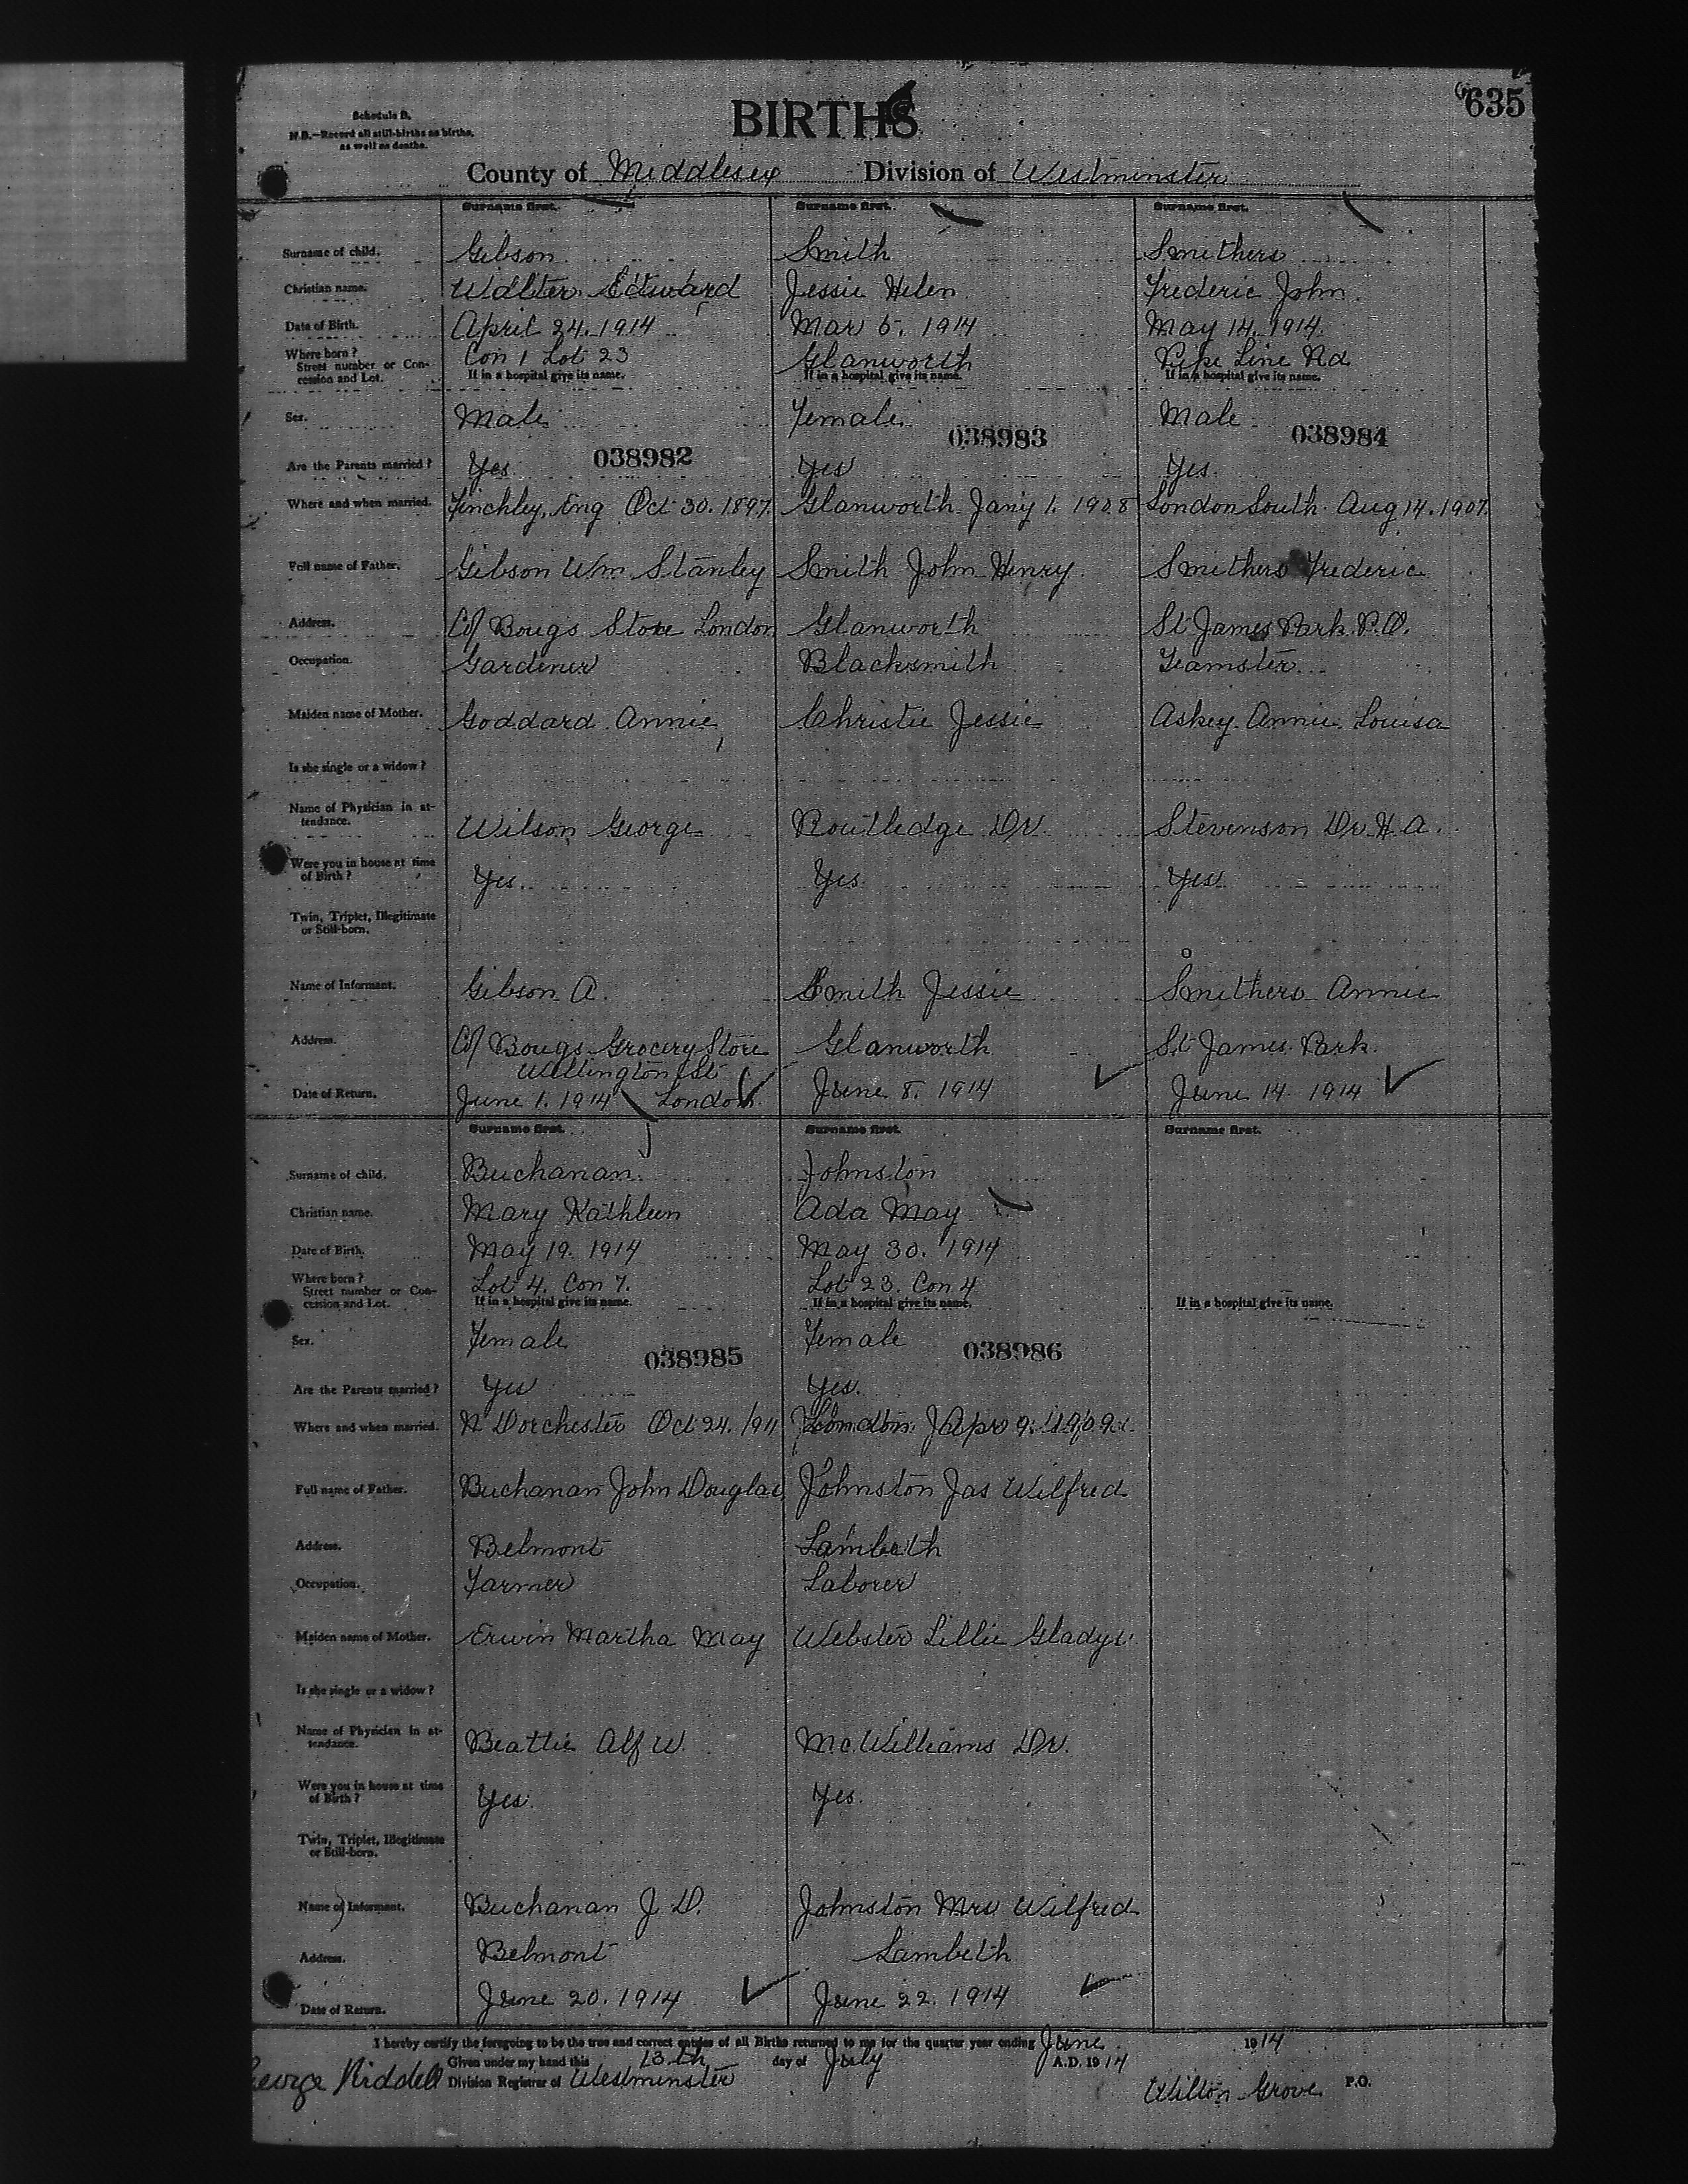 635
Schedule B.
N.B.—Record all still-births as births,
as well as deaths.
BIRTHS
County of Middlesex Division of Westminster
Surname first. Surname first. Surname first.
Surname of child. Gibson Smith Smithers
Christian name. Walter Edward Jessie Helen Frederic John
Date of Birth. April 24. 1914 Mar 5. 1914 May 14. 1914
Where born? Con 1 Lot 23 Glanworth Pipe Line Rd
Street number or Con-
cession and Lot. If in a hospital give its name. If in a hospital give its name. If in a hospital give its name.
Sex. Male Female Male
038982 038983 038984
Are the Parents married? Yes Yes Yes.
Where and when married. Finchley, Eng Oct 30. 1897. Glanworth Jany 1. 1908 London South Aug 14. 1907.
Full name of Father. Gibson Wm Stanley Smith John Henry Smithers Frederic
Address. C/ Bougs Store London Glanworth St James Park P.O.
Occupation. Gardener Blacksmith Teamster
Maiden name of Mother. Goddard Annie Christie Jessie Askey Annie Louisa
Is she single or a widow?
Name of Physician in at-
tendance. Wilson George Routledge Dr. Stevenson Dr. H. A.
Were you in house at time
of Birth? Yes. Yes. Yes
Twin, Triplet, Illegitimate
or Still-born.
Name of Informant. Gibson A. Smith Jessie Smithers Annie
Address. C/ Bougs Grocery Store Glanworth St James Park
Wellington St
Date of Return. June 1. 1914 London. June 8. 1914 June 14 1914
Surname first. Surname first. Surname first.
Surname of child. Buchanan Johnston
Christian name. Mary Kathleen Ada May
Date of Birth. May 19. 1914 May 30. 1914
Where born? Lot 4. Con 7. Lot 23. Con 4
Street number or Con-
cession and Lot. If in a hospital give its name. If in a hospital give its name. If in a hospital give its name.
Sex. Female Female
038985 038986
Are the Parents married? Yes Yes.
Where and when married. N Dorchester Oct 24. 1911 London Apr 9. 1909
Full name of Father. Buchanan John Douglas Johnston Jas Wilfred
Address. Belmont Lambeth
Occupation. Farmer Laborer
Maiden name of Mother. Erwin Martha May Webster Lillie Gladys
Is she single or a widow?
Name of Physician in at-
tendance. Beattie Alf W. McWilliams Dr.
Were you in house at time
of Birth? Yes. Yes.
Twin, Triplet, Illegitimate
or Still-born.
Name of Informant. Buchanan J D. Johnston Mrs Wilfred
Address. Belmont Lambeth
Date of Return. June 20. 1914 June 22. 1914
I hereby certify the foregoing to be the true and correct entries of all Births returned to me for the quarter year ending June 1914
Given under my hand this 13th day of July A.D. 1914
George Riddell Division Registrar of Westminster Wilton Grove P.O.